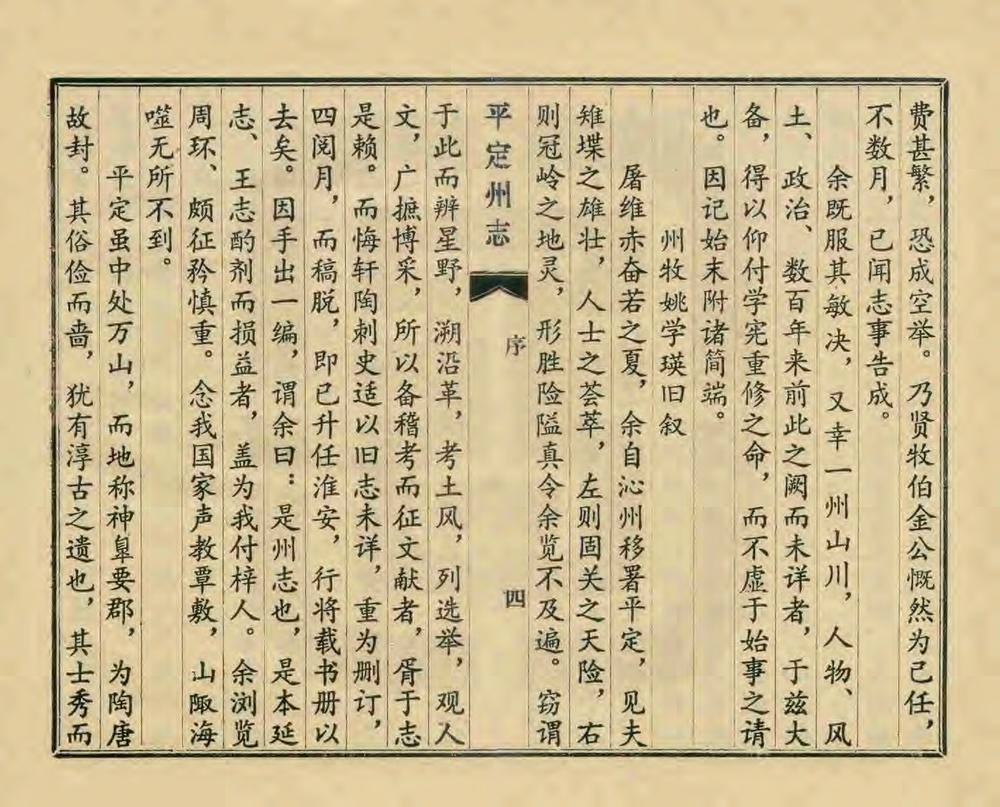 费甚繁，恐成空举。乃贤牧伯金公慨然为己任，
不数月，已闻志事告成。
余既服其敏决，又幸一州山川，人物、风
土、政治、数百年来前此之阙而未详者，于兹大
备，得以仰付学宪重修之命，而不虚于始事之请
也。因记始末附诸简端。
州牧姚学瑛旧叙
屠维赤奋若之夏，余自沁州移署平定，见夫
雉堞之雄壮，人士之荟萃，左则固关之天险，右
则冠岭之地灵，形胜险隘真令余览不及遍。窃谓
平定州志
序
四
于此而辨星野，溯沿革，考土风，列选举，观人
文，广摭博采，所以备稽考而征文献者，胥于志
是赖。而悔轩陶刺史适以旧志未详，重为删订，
四阅月，而稿脱，即已升任淮安，行将载书册以
去矣。因手出一编，谓余曰：是州志也，是本延
志、王志酌剂而损益者，盖为我付梓人。余浏览
周环、颇征矜慎重。念我国家声教覃敷，山陬海
噬无所不到。
平定虽中处万山，而地称神臯要郡，为陶唐
故封。其俗俭而啬，犹有淳古之遗也，其士秀而